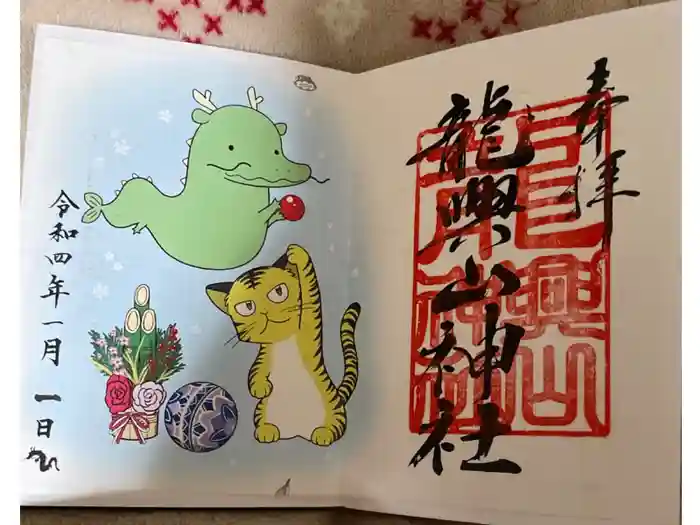 奉拝
龍興山神社
龍興山神社
令和四年一月一日